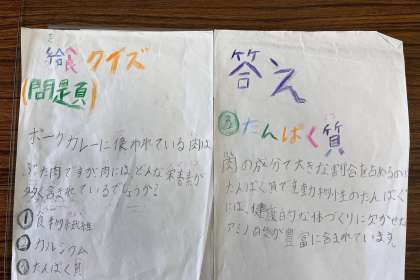 給食クイズ
(問題)
ポークカレーに使われている肉は
ぶた肉ですが肉にはどんな栄養素が
多く含まれているでしょうか?
①食物せんい
②カルシウム
③たんぱく質
答え
③たんぱく質
肉の成分で大きな割合を占めるのは
たんぱく質で動物性のたんぱく
には、健康的な体づくりに欠かせない
アミノ酸が豊富に含まれています。